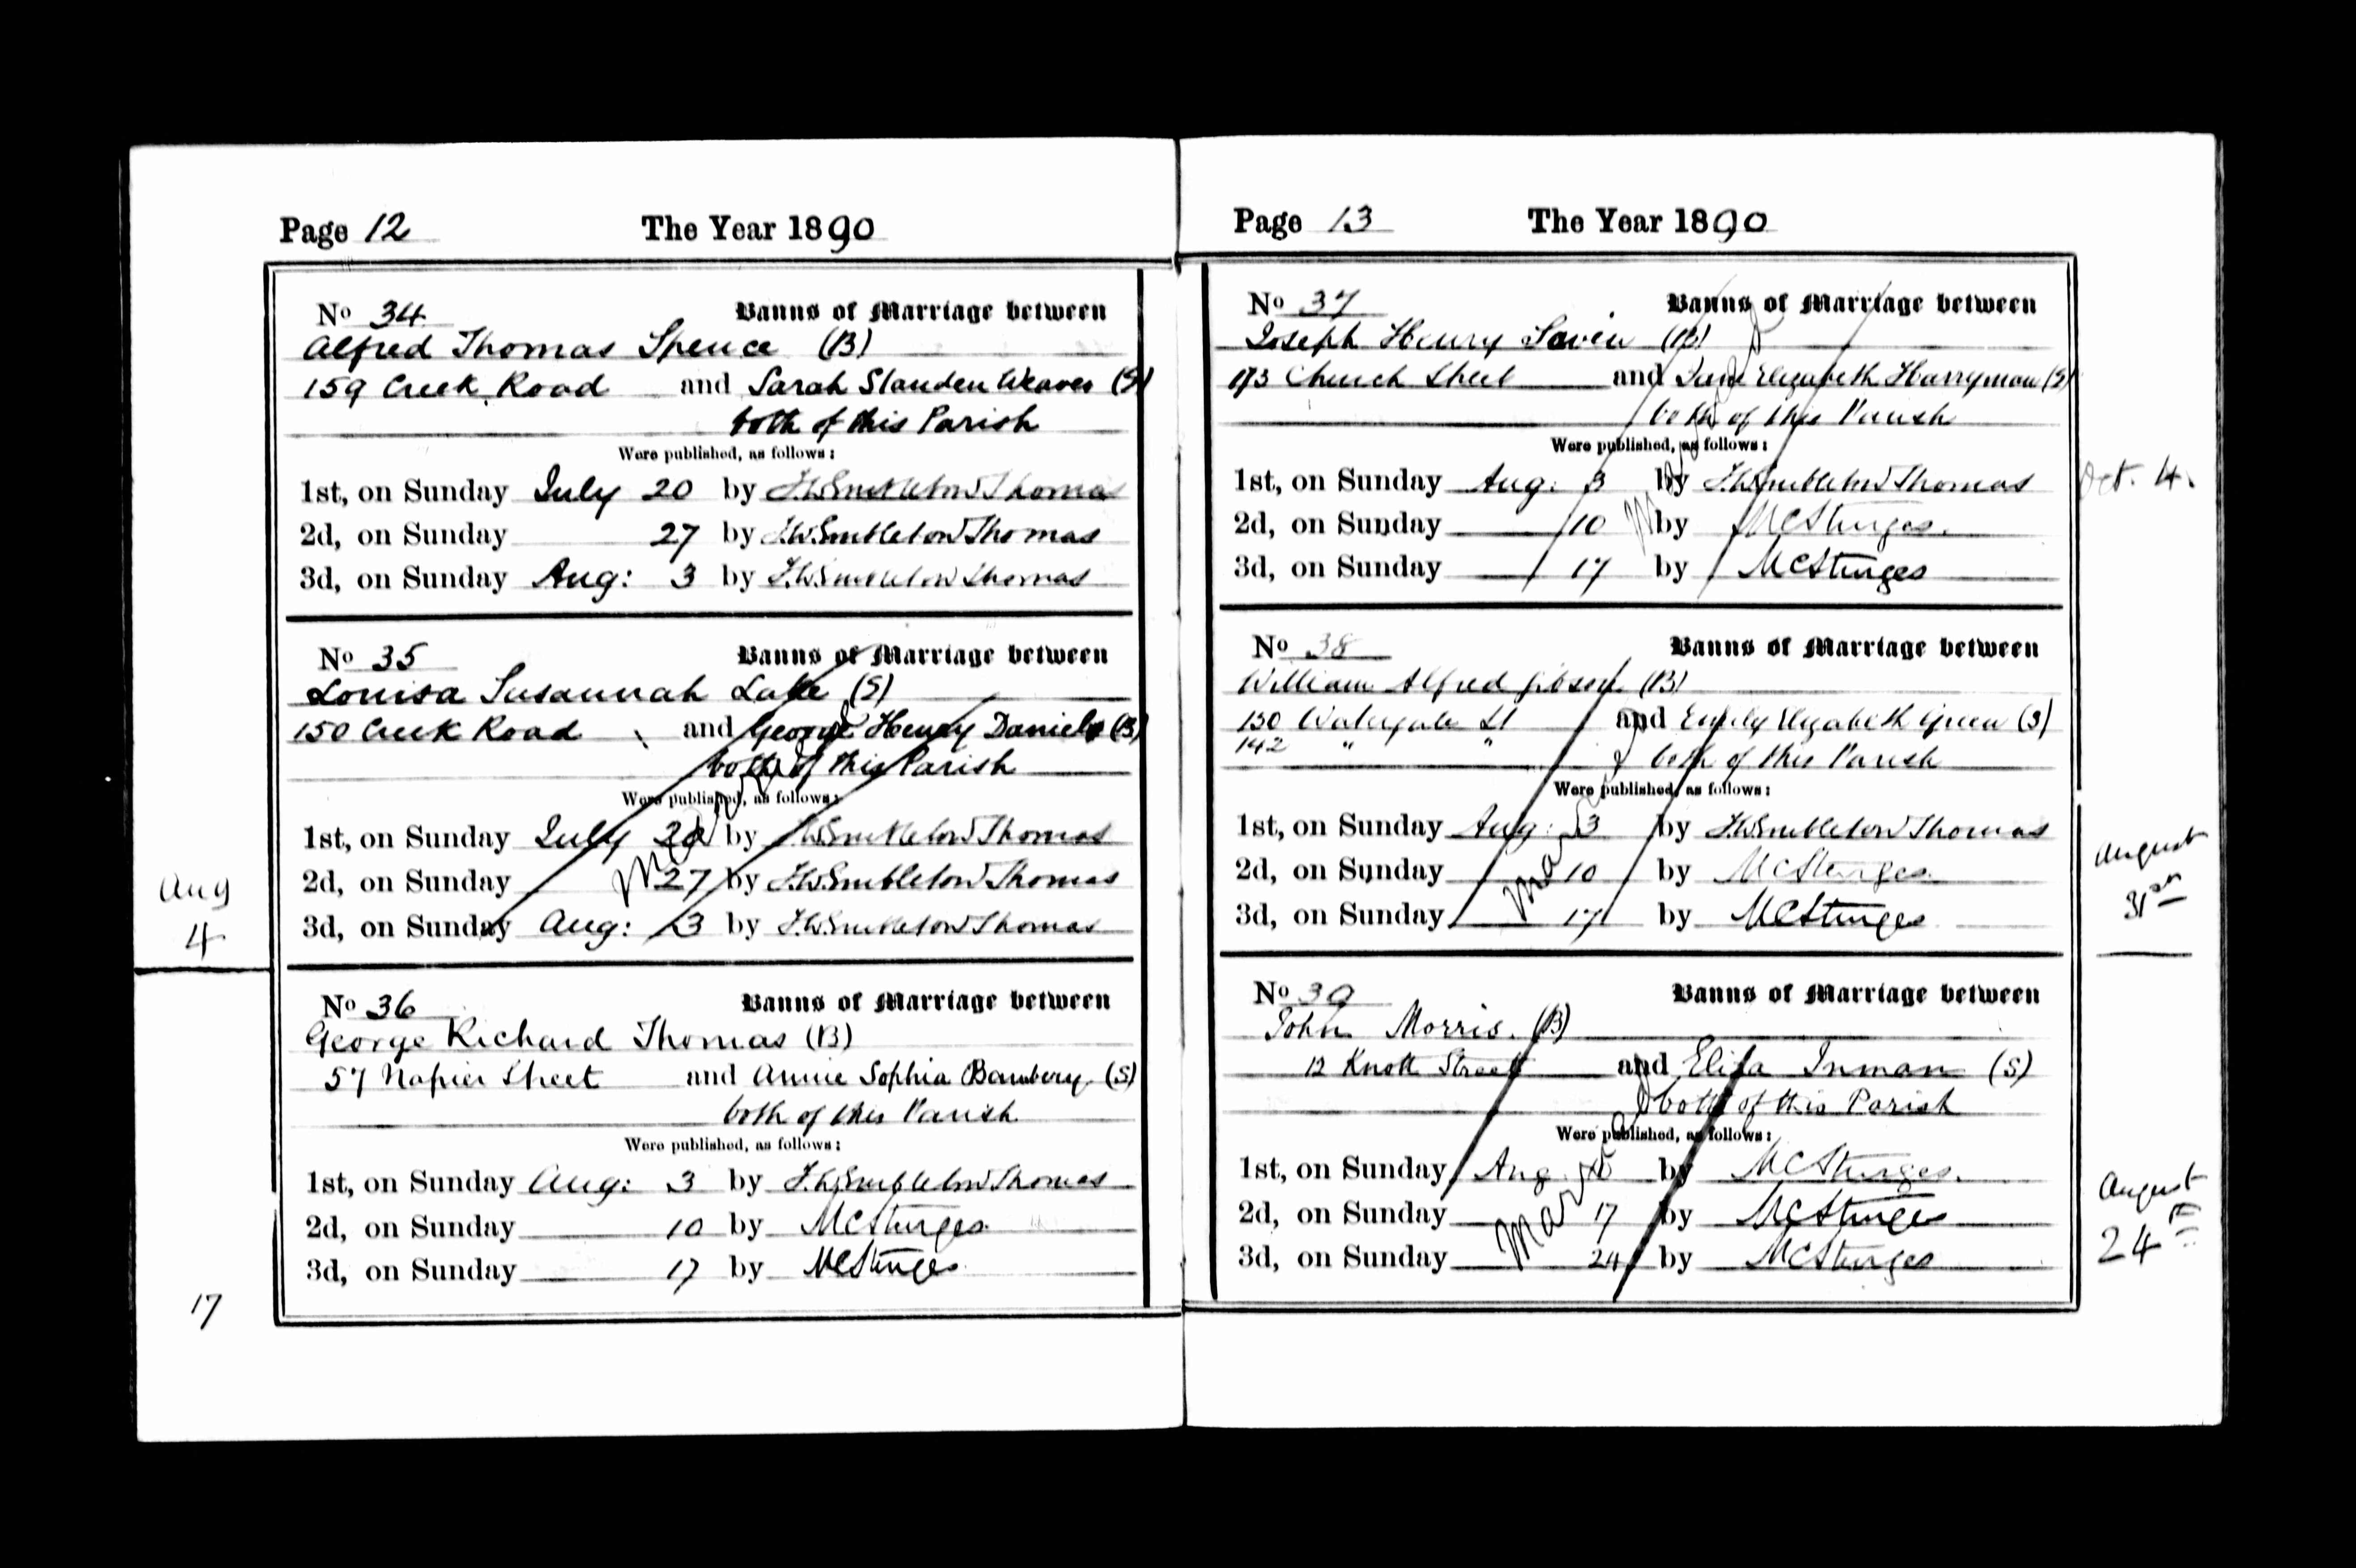 Page 12 The Year 1890
No 34 Banns of Marriage between
Alfred Thomas Spence (B)
159 Creek Road and Sarah Slanden Weaver (S)
both of this Parish
Were published, as follows:
1st, on Sunday July 20 by J.W. Embleton Thomas
2d, on Sunday 27 by J.W. Embleton Thomas
3d, on Sunday Aug: 3 by J.W. Embleton Thomas
No 35 Banns of Marriage between
Louisa Susannah Lake (S)
150 Creek Road and George Henry Daniels (B)
both of this Parish
Were published, as follows:
1st, on Sunday July 20 by J.W. Embleton Thomas
2d, on Sunday 27 by J.W. Embleton Thomas
3d, on Sunday Aug: 3 by J.W. Embleton Thomas
Married
Aug
4
No 36 Banns of Marriage between
George Richard Thomas (B)
57 Napier Street and Annie Sophia Bambery (S)
both of this Parish
Were published, as follows:
1st, on Sunday Aug: 3 by J.W. Embleton Thomas
2d, on Sunday 10 by MCSturges
3d, on Sunday 17 by MCSturges
17
Page 13 The Year 1890
No 37 Banns of Marriage between
Joseph Henry (B)
173 Church Street and Jane Elizabeth Harryman (S)
both of this Parish
Were published, as follows:
1st, on Sunday Aug: 3 by J.W. Embleton Thomas
2d, on Sunday 10 by MCSturges.
3d, on Sunday 17 by MCSturges
Married
Oct. 4.
No 38 Banns of Marriage between
William Alfred Gibson (B)
130 Watergate St and Emily Elizabeth Green (S)
142 " " both of this Parish
Were published, as follows:
1st, on Sunday Aug: 3 by J.W. Embleton Thomas
2d, on Sunday 10 by MCSturges
3d, on Sunday 17 by MCSturges
Married
August
31st
No 39 Banns of Marriage between
John Morris. (B)
12 Knott Street and Eliza Inman (S)
both of this Parish
Were published, as follows:
1st, on Sunday Aug. 10 by MCSturges.
2d, on Sunday 17 by MCSturges
3d, on Sunday 24 by MCSturges
Married
August
24th